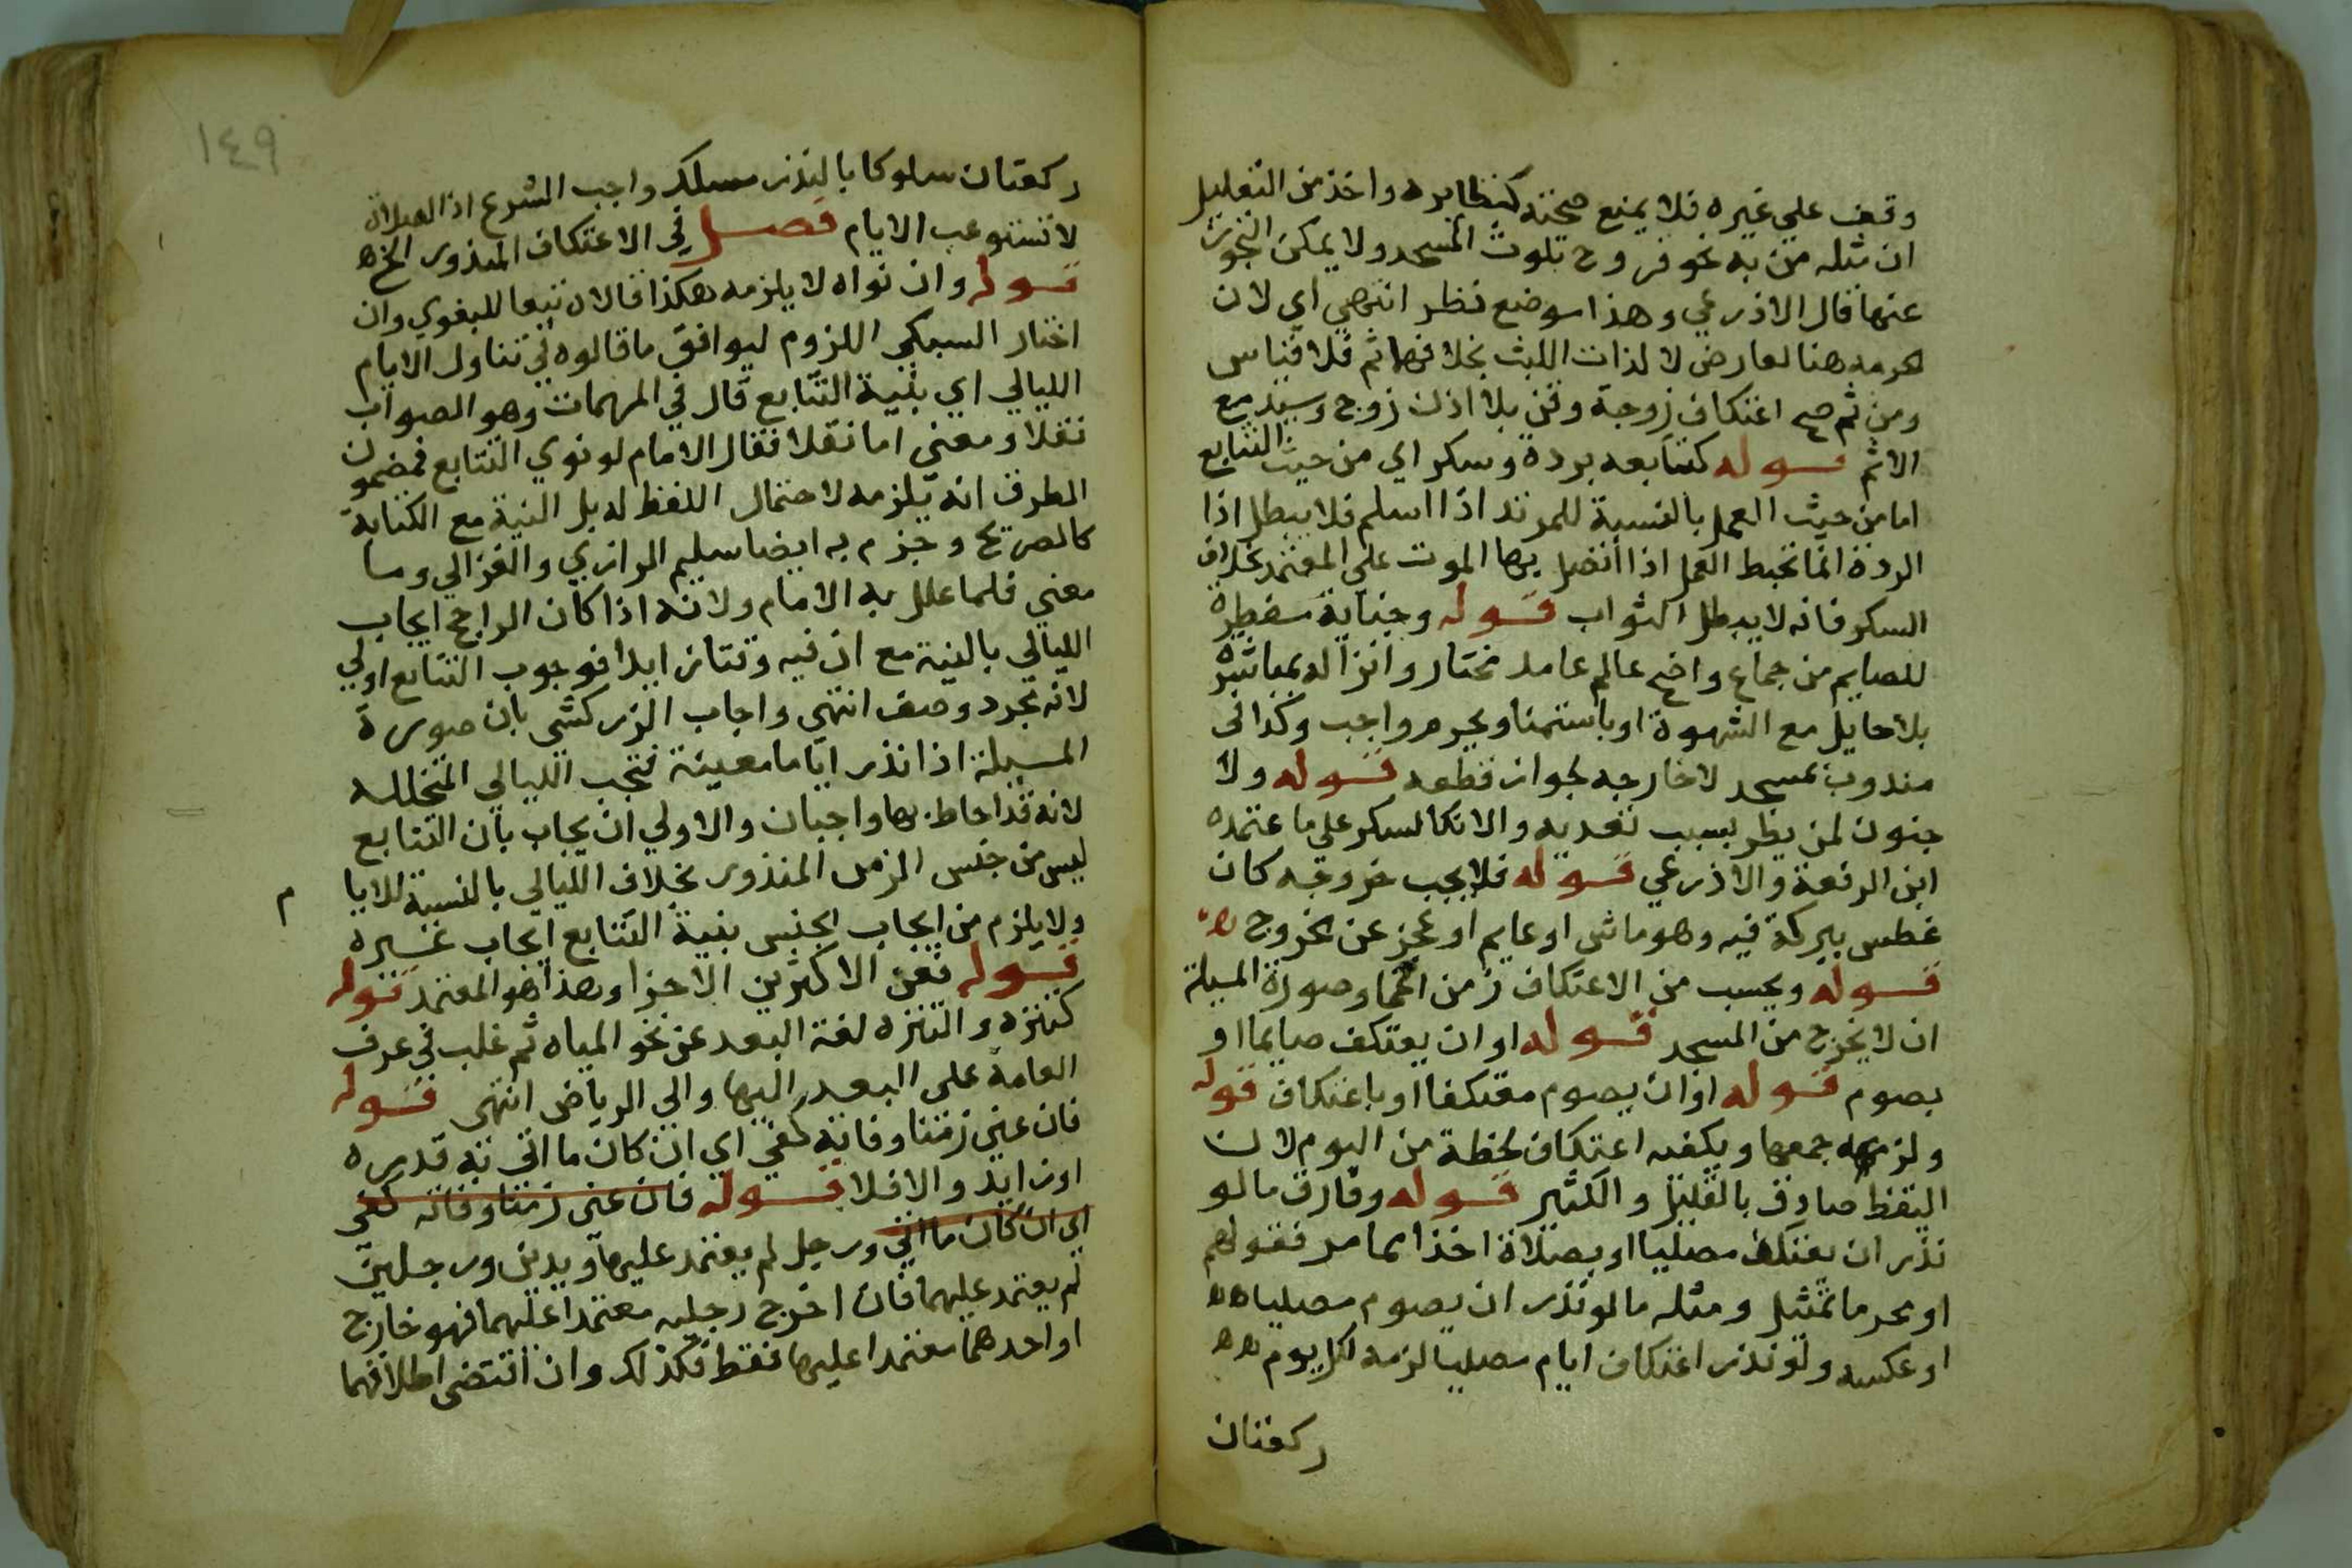 وقف علي غيره فلا يمنع صحته كنظايره واخذ من التعليل
ان مثله من به نحو قروح تلوث المسجد ولا يمكن التحرز
عنها قال الاذرعي وهذا موضع نظر انتهي اي لان
الحرمه هنا لعارض لا لذات اللبث بخلافها ثم فلا قياس
ومن ثم صح اعتكاف زوجة وقن بلا اذن زوج وسيد مع
الاثم قوله كتتابعه بردة وسكر اي من حيث التتابع
اما من حيث العمل بالنسبة للمرتد اذا اسلم فلا يبطل اذا
الردة انما تحبط العمل اذا اتصل بها الموت علي المعتمد بخلاف
السكر فانه لا يبطل الثواب قوله وجنابة مفطرة
للصايم من جماع واضح عالم عامد مختار وانزاله بمباشرة
بلا حايل مع الشهوة او باستمنا ويحرم واجب وكذا في
مندوب بمسجد لا خارجه لجواز قطعه قوله ولا
جنون لمن يطر بسبب تعديه والا كالسكر علي ما عتمده
ابن الرفعة والاذرعي قوله فلا يجب خروجه كان
غطس ببركة فيه وهو ماشي او عايم او عجز عن الخروج ه
قوله ويحسب من الاعتكاف زمن اغما وصورة المسيلة
ان لا يخرج من المسجد قوله او ان يعتكف صايما او
بصوم قوله او ان يصوم معتكفا او باعتكاف قوله
ولزمه جمعها ويكفيه اعتكاف لحظة من اليوم لان
اللفظ صادق بالقليل والكثير قوله وفارق ما لو
نذر ان يعتكف مصليا او بصلاة اخذا بما مر فقولهم
او محرما تمثيل ومثله ما لو نذر ان يصوم مصليا هه
او عكسه ولو نذر اعتكاف ايام مصليا لزمه لكل يوم هه
ركعتان
١٤٩
ركعتان سلوكا بالنذر مسلك واجب الشرع اذ الصلاة
لا تستوعب الايام فصل في الاعتكاف المنذور الخ ه
قوله وان نواه لا يلزمه هكذا قالاه تبعا للبغوي وان
اختار السبكي اللزوم ليوافق ما قالوه في تناول الايام
الليالي اي بنية التتابع قال في المهمات وهو الصواب
نقلا ومعني اما نقلا فقال الامام لو نوي التتابع فمضمون
الطرق انه يلزمه لاحتمال اللفظ له بل النية مع الكناية
كالصريح وجزم به ايضا سليم الرازي والغزالي وما
معني فلما علل به الامام ولانه اذا كان الراجح ايجاب
الليالي بالنية مع ان فيه وقتا زايدا فوجوب التتابع اولي
لانه مجرد وصف انتهي واجاب الزركشي بان صورة
المسيلة اذا نذر اياما معينة فتجب الليالي المتخلله
لانه قد احاط بها واجبان والاولي ان يجاب بان التتابع
ليس من جنس الزمن المنذور بخلاف الليالي بالنسبة للايا م
ولا يلزم من ايجاب الجنس بنية التتابع ايجاب غيره
قوله فعن الاكثرين الاجزا وهذا هو المعتمد قوله
كتنزه والتنزه لغة البعد عن نحو المياه ثم غلب في عرف
العامة علي البعد اليها والي الرياض انتهي قوله
فان عين زمنا وفاته كفي اي ان كان ما اتي به قدره
او زايد والا فلا قوله فان عين زمنا وفاته كفي
اي ان كان ما اتي ورجل لم يعتمد عليها ويدين ورجلين
لم يعتمد عليهما فان اخرج رجليه معتمدا عليهما فهو خارج
او احدهما معتمدا عليها فقط فكذلك وان اقتضي اطلاقهما